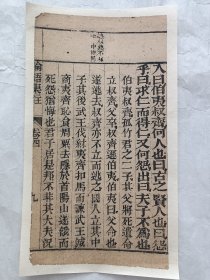 入曰伯夷叔齊何人也曰古之賢人也曰怨
乎曰求仁而得仁又何怨出曰夫子不為也
伯夷叔齊孤竹君之二子其父將死遺命
立叔齊父卒叔齊遜伯夷伯夷曰父命也
遂逃去叔齊亦不立而逃之國人立其中
子其後武王伐紂夷齊扣馬而諫武王滅
商夷齊恥食周粟去隱於首陽山遂餓而
死怨猶悔也君子居是邦不非其大夫況
論語集註 卷四 九